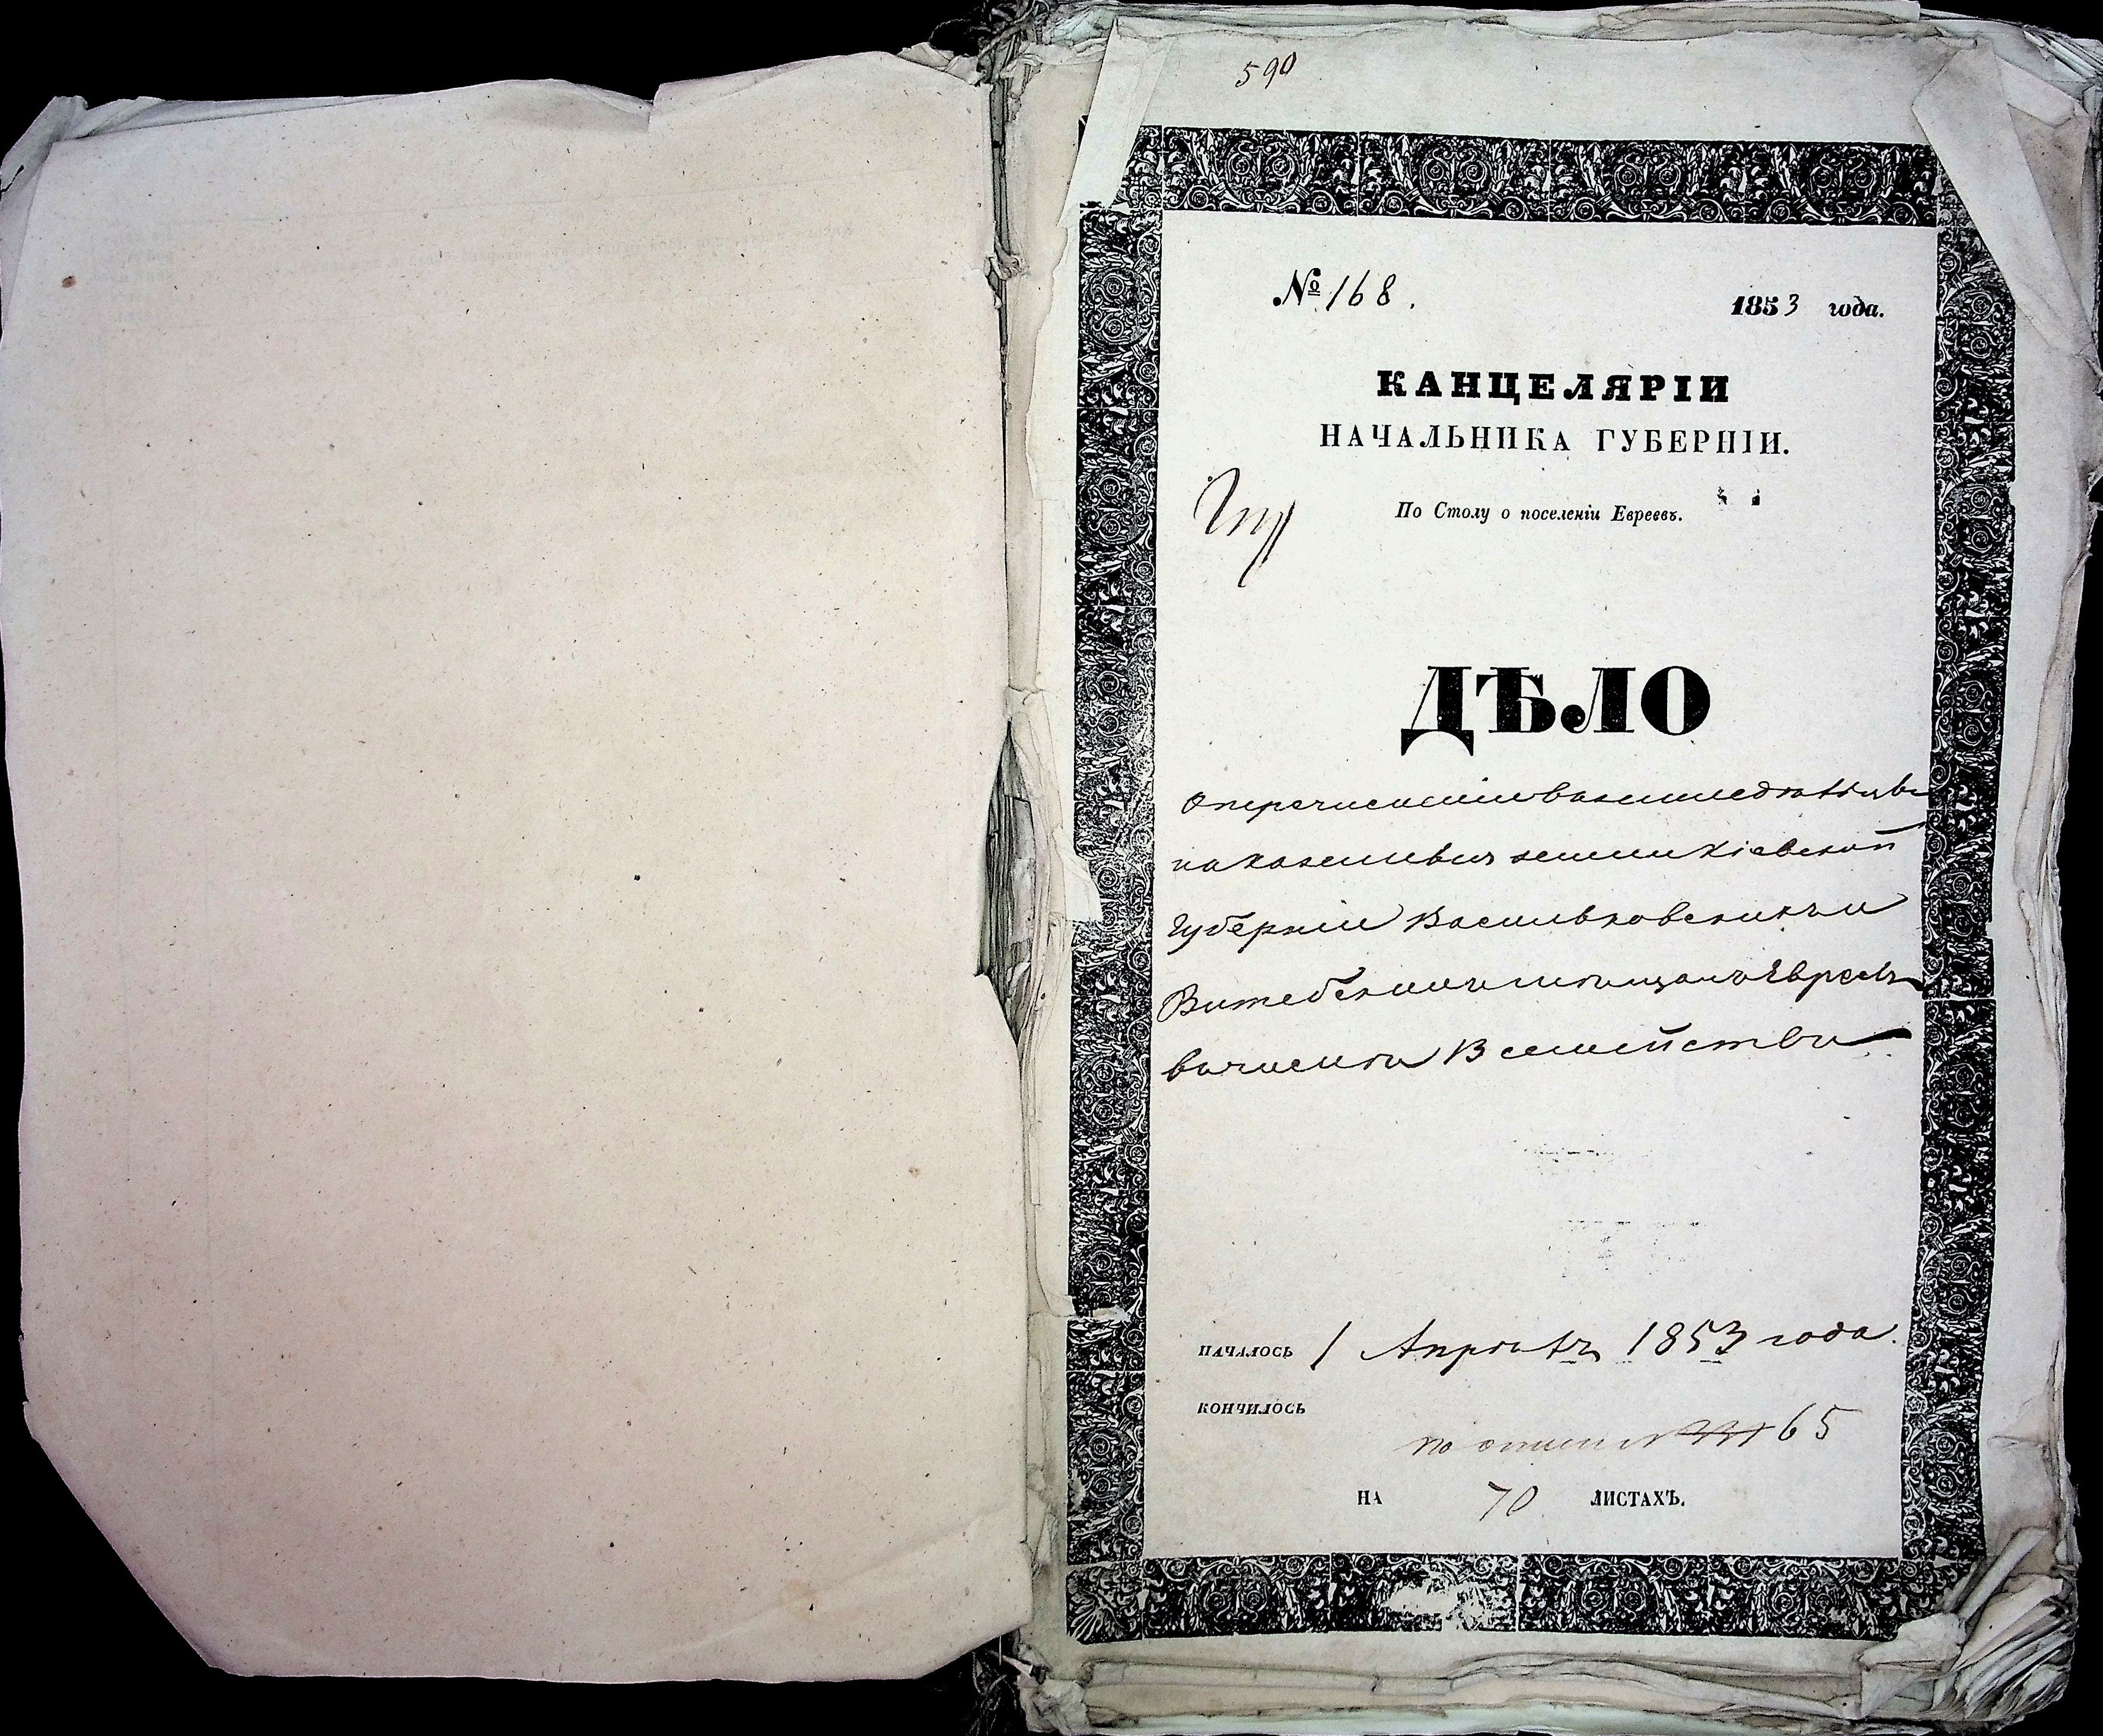 590
№ 168.
1853 года.
КАНЦЕЛЯРІИ
НАЧАЛЬНИКА ГУБЕРНІИ.
По Столу о поселеніи Евреевъ.
ДѢЛО
О перечисленіи въ земледѣльцы
на казенныя земли Кіевской
Губерніи Васильковскихъ и
Витебскихъ мѣщанъ Евреевъ
въ числѣ 13 семействъ
НАЧАЛОСЬ 1 Апрѣля 1853 года.
КОНЧИЛОСЬ
по описи № 65
НА 70 ЛИСТАХЪ.